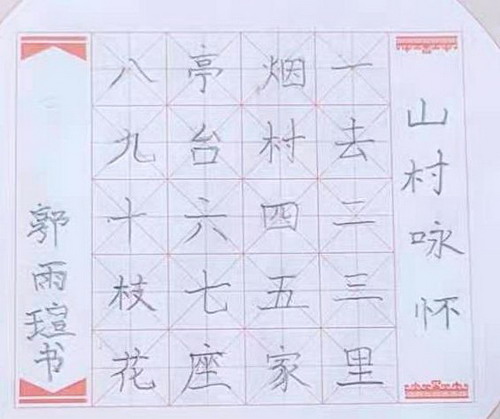 山村咏怀
一去二三里
烟村四五家
亭台六七座
八九十枝花
郭雨瑄书